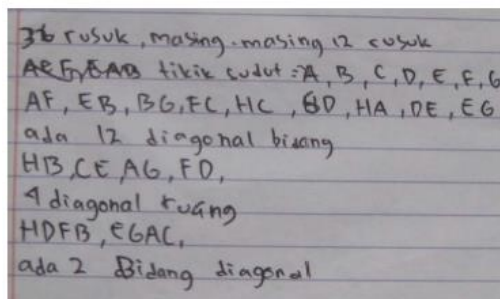 36 rusuk, masing-masing 12 rusuk
titik sudut = A, B, C, D, E, F, G
AF, EB, BG, FC, HC, GD, HA, DE, EG
ada 12 diagonal bidang
HB, CE, AG, FD,
4 diagonal ruang
HDFB, EGAC,
ada 2 Bidang diagonal